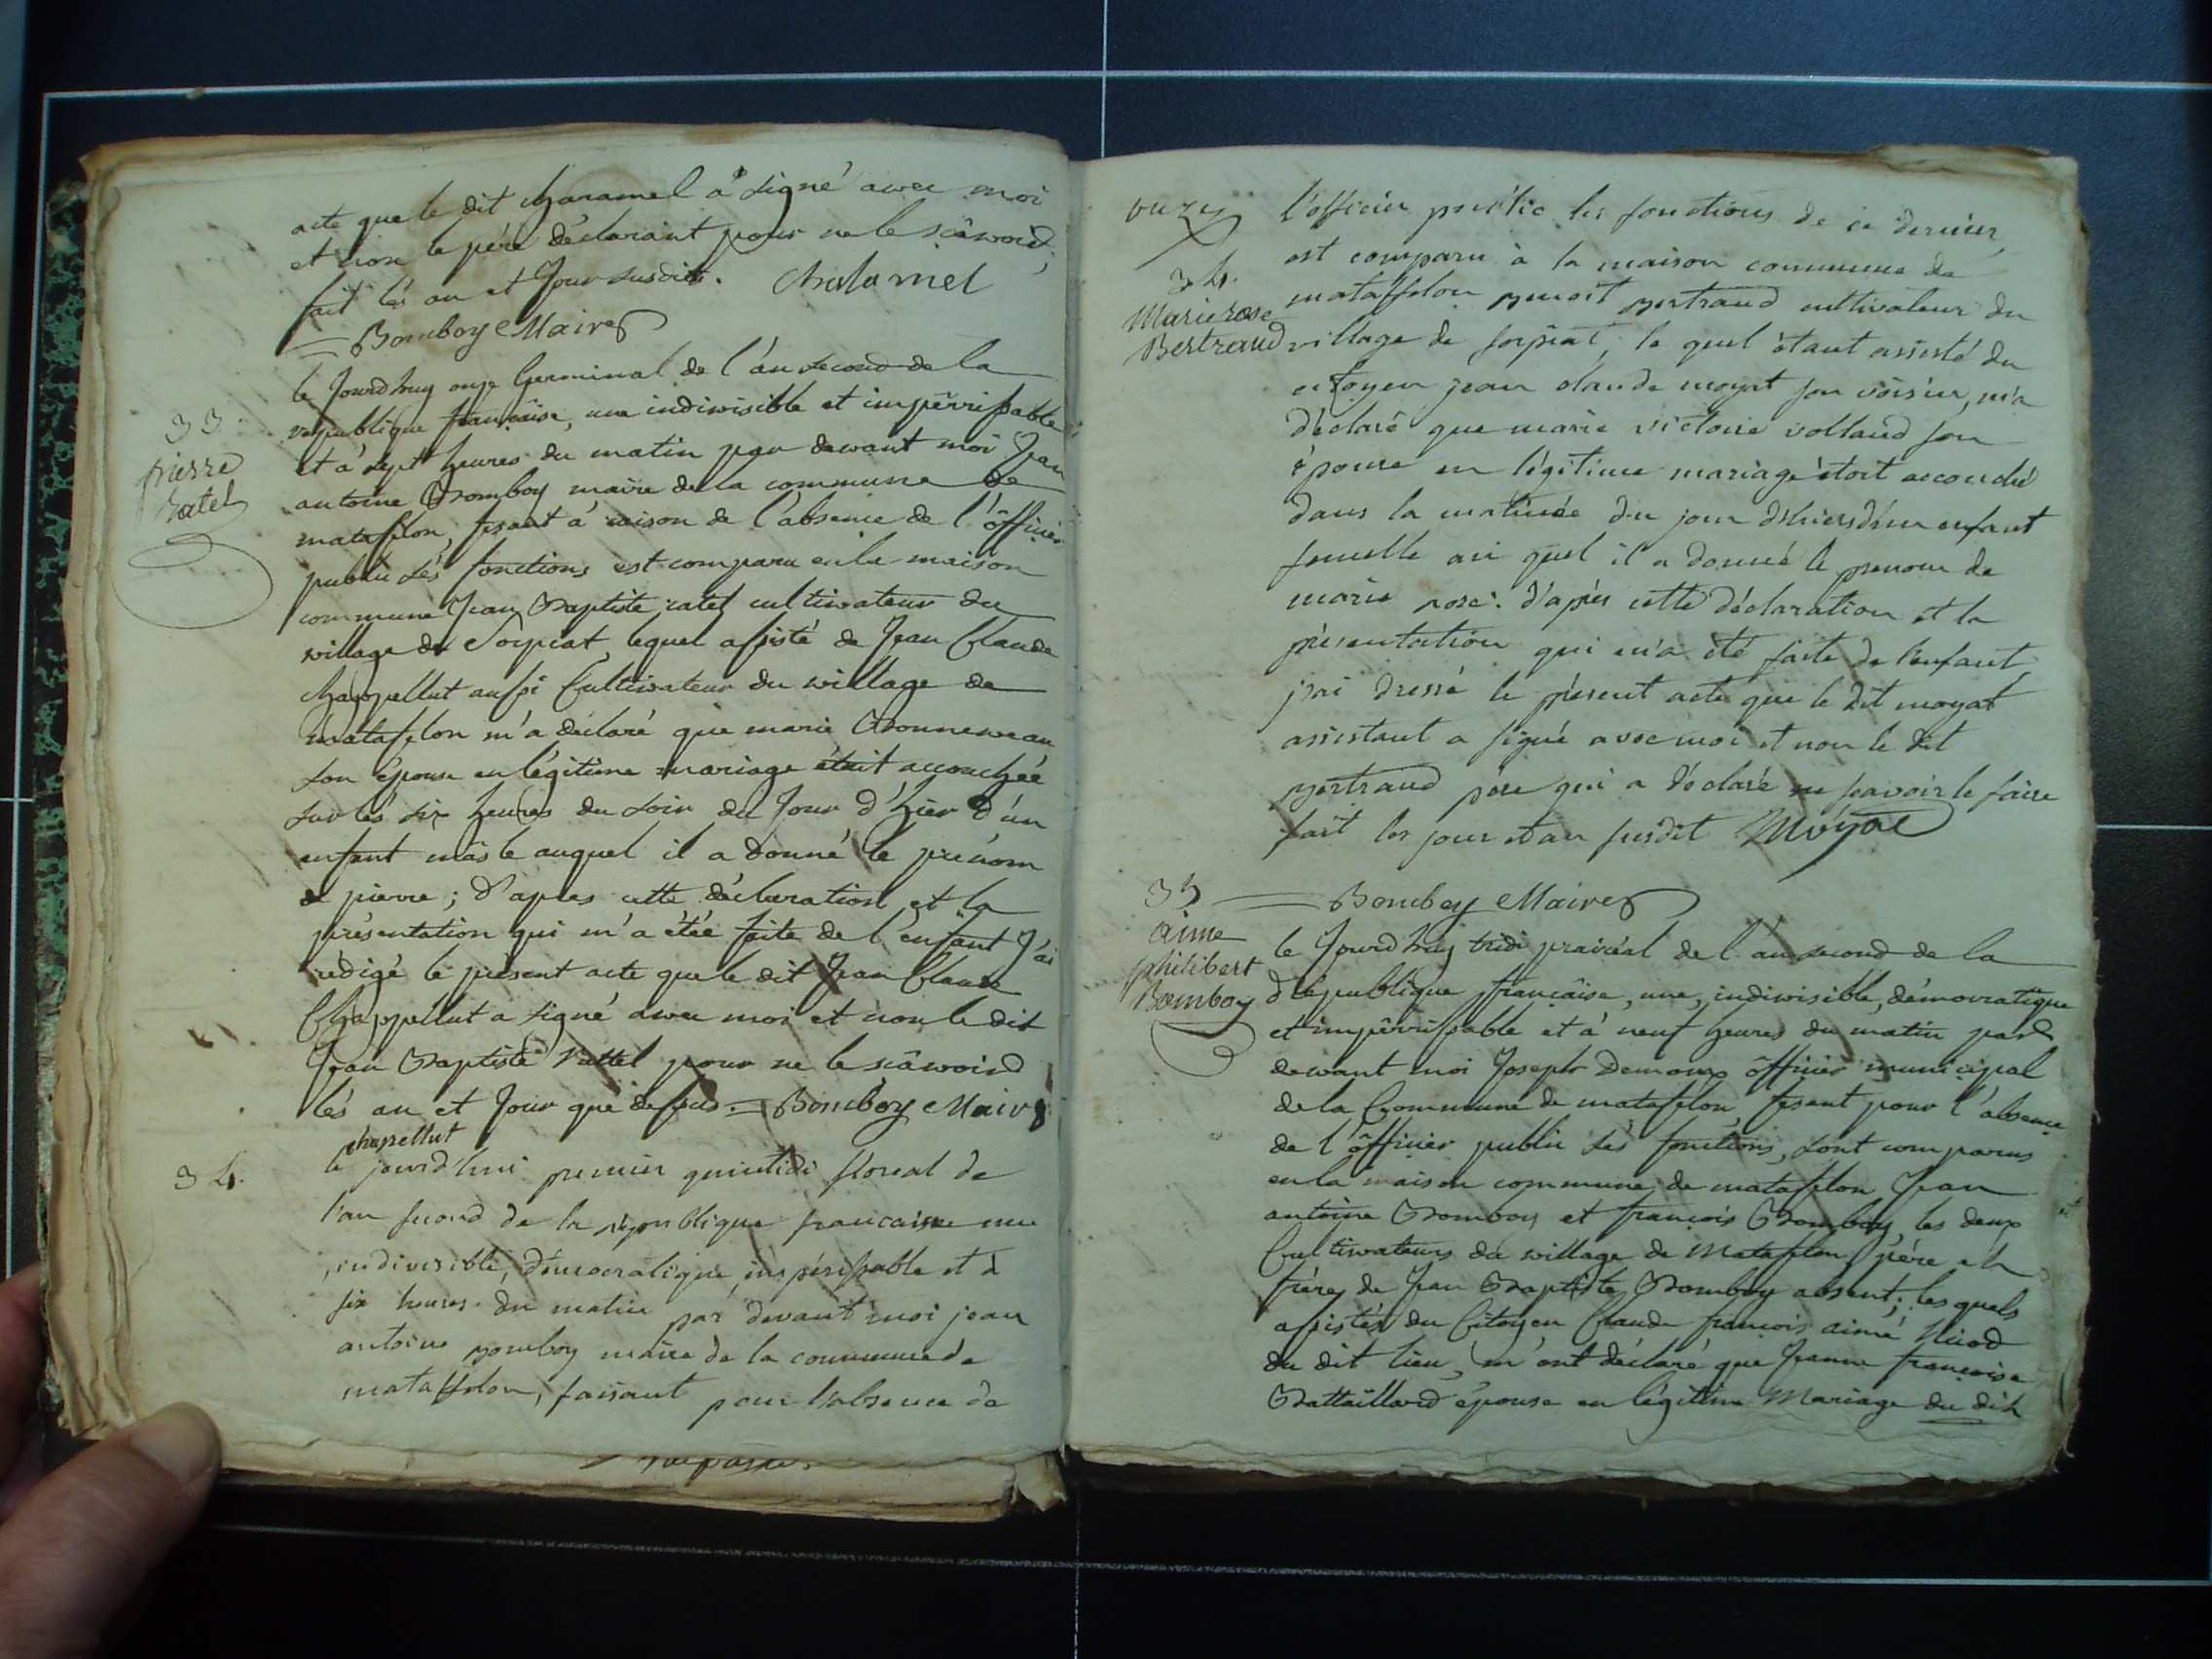 acte que le dit charamel a signé avec moi
et non le pére déclarant pour ne le sçâwoir,
fait lés an et Jour susdits. Chalamel
Bomboy Maire
33
pierre
ratel
le Jourd huy onze Germinal de l'ân second de la
republique françâise, une indiwisible et impérrissable
et a' sept heures du matin par dewant moi Jean
antoine Bomboy maire de la commune de
matafelon, fesant a' raison de l'absence de l'ôfficier
public sés fonctions est comparu en la maison
commune Jean Baptiste ratel cultiwateur du
willage de Sorpiat, lequel assisté de Jean Claude
chappellut aussi Cultiwateur du willage de
matafelon m'a déclaré que marie Bonneweau
son épouse en légitime mariage était accouchée
sur lés six heures du soir du Jour d'hier d'ún
enfant mâsle auquel il a donné le prénom
de pierre; d'aples cette déclaration et la
présentation qui m'a étée faite de l'enfant J'ai
rédigé le présent acte que le dit Jean Claude
Chappellut a signé awec moi et non le dit
Jean Baptiste rattel pour ne le sçâwoir
lés an et Jour que dessus. Bomboy Maire
chapellut
34.
le jourd'hui premier quintidi floreal de
l'an second de la république francaise une
indivisible, démocratique, impérissable et à
six heures du matin par devant moi jean
antoine bomboy maire de la commune de
mataffelon, faisant pour l'absence de
onze
34.
Marie rose
Bertrand
l'officier public les fonctions de ce dernier,
est comparu à la maison commune de
mataffelon benoit bertrand cultivateur du
village de sorpiat, le quel étant assisté du
citoyen jean claude moyat son voisin, m'a
déclaré que marie victoire volland son
épouse en légitime mariage étoit accouché
dans la matinée du jour d'hier d'un enfant
femelle au quel il a donné le prenom de
marie rose. d'après cette déclaration et la
présentation qui m'a été faite de l'enfant
j'ai dressé le présent acte que le dit moyat
assistant a signé avec moi et non le dit
bertrand père qui a déclaré ne scavoir le faire
fait les jour et an susdit Moyat
Bomboy Maire
35
aimé
philibert
Bomboy
le Jourd huy tridi prairéal de l'ân second de la
République françâise, une, indiwisible, démocratique
et impérrissable et a' neuf heures du matin par
dewant moi Joseph Demoux ôfficier municipal
de la Commune de matafelon, fesant pour l'absence
de l'ôfficier public sés fonctions, sont comparus
en la maison commune de matafelon Jean
antoine Bomboy et françois Bomboy, les deux
Cultiwateurs du willage de Matafelon, pére et
frére de Jean Baptiste Bomboy absent; les quels
assistés du Citoyen Claude françois aimé Nicod
du dit lieu, m'ont déclaré que Jeanne françoise
Battaillard épouse en légitime Mariage du dit